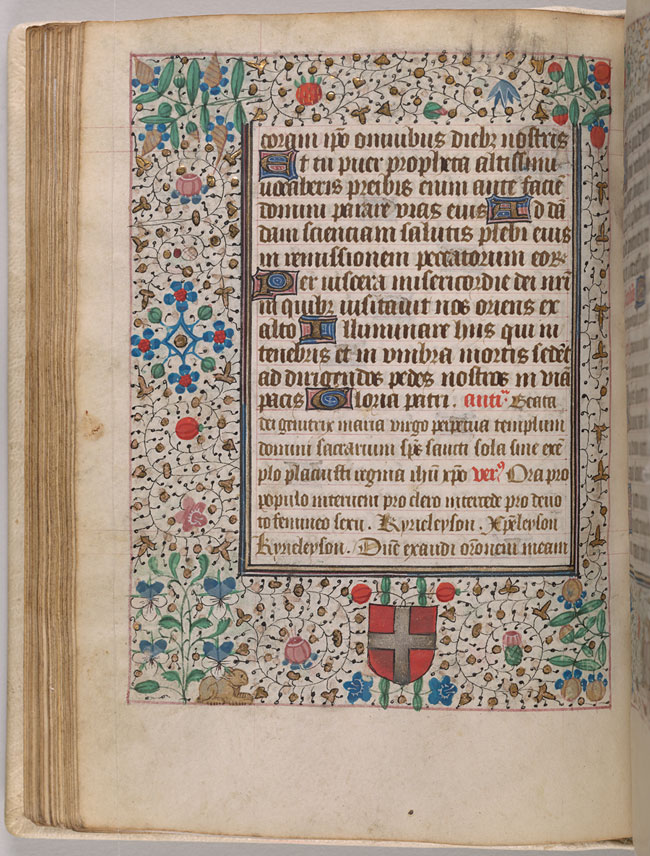 coram ipo omnibus diebz nostris
Et tu puer propheta altissimi
vocaberis preibis enim ante facie
domini parare vias eius Ad da
dam scienciam salutis plebi eius
in remissionem peccatorum eor
Per viscera misericordie dei nri
in quibz visitavit nos oriens ex
alto Illuminare hiis qui in
tenebris et in umbra mortis sedet
ad dirigendos pedes nostros in via
pacis Gloria patri. anti Beata
dei genitrix maria virgo perpetua templum
domini sacrarium sps sancti sola sine exe
plo placuisti regina ihu xpo vers Ora pro
populo interveni pro clero intercede pro devo
to femineo sexu. Kyrieleyson. Xpeleyson
Kyrieleyson. Dne exaudi oronem meam